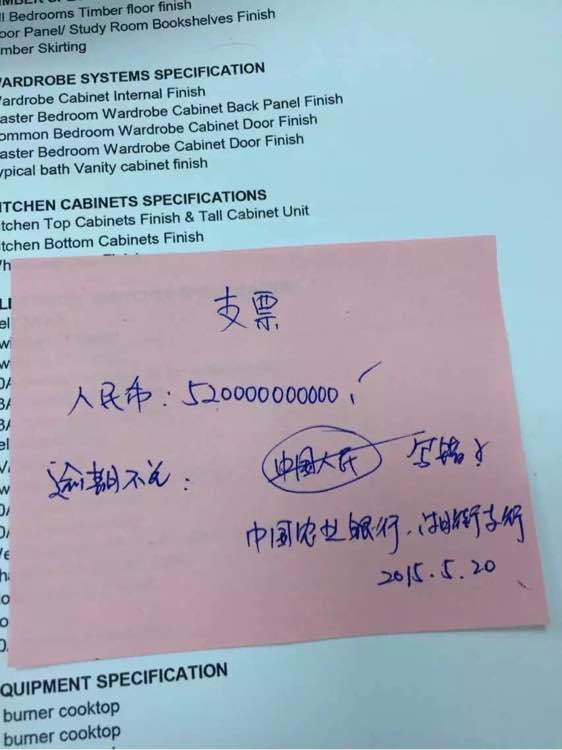 ll Bedrooms Timber floor finish
oor Panel/ Study Room Bookshelves Finish
mber Skirting
ARDROBE SYSTEMS SPECIFICATION
ardrobe Cabinet Internal Finish
aster Bedroom Wardrobe Cabinet Back Panel Finish
ommon Bedroom Wardrobe Cabinet Door Finish
aster Bedroom Wardrobe Cabinet Door Finish
ypical bath Vanity cabinet finish
ITCHEN CABINETS SPECIFICATIONS
itchen Top Cabinets Finish & Tall Cabinet Unit
itchen Bottom Cabinets Finish
支票
人民币：520000000000
逾期不兑： 中国人民 写错了
中国农业银行
支行
2015.5.20
QUIPMENT SPECIFICATION
burner cooktop
burner cooktop